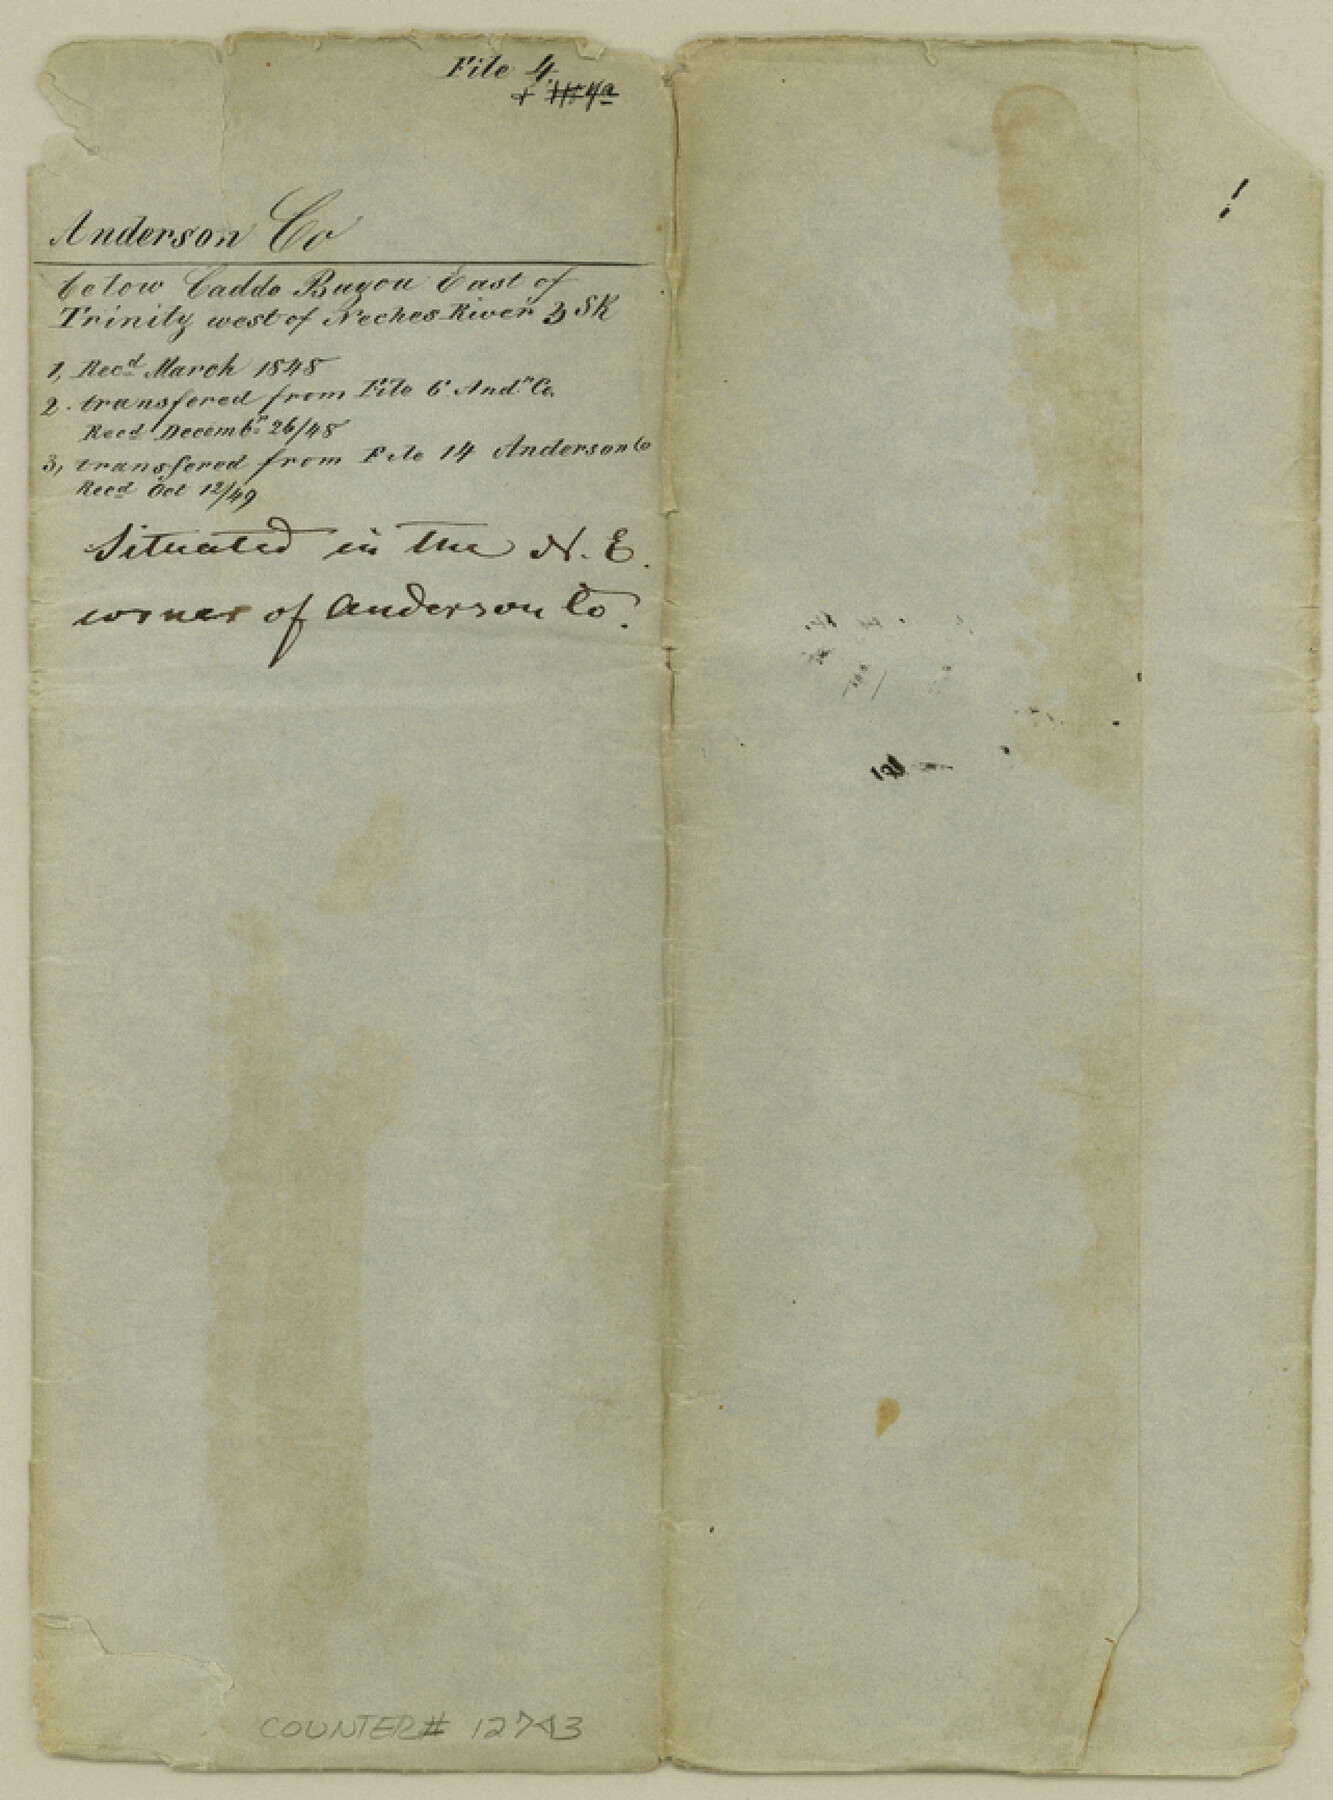 File 4
+ 4a
Anderson Co
below Caddo Buyou East of
Trinity west of Neches River 3 SK
1, Recd March 1848
2. transfered from File 6 Andn Co.
Recd Decembr 26/48
3, transfered from File 14 Anderson Co
Recd Oct 12/49
Situated in the N. E.
corner of Anderson Co.
COUNTER# 12743